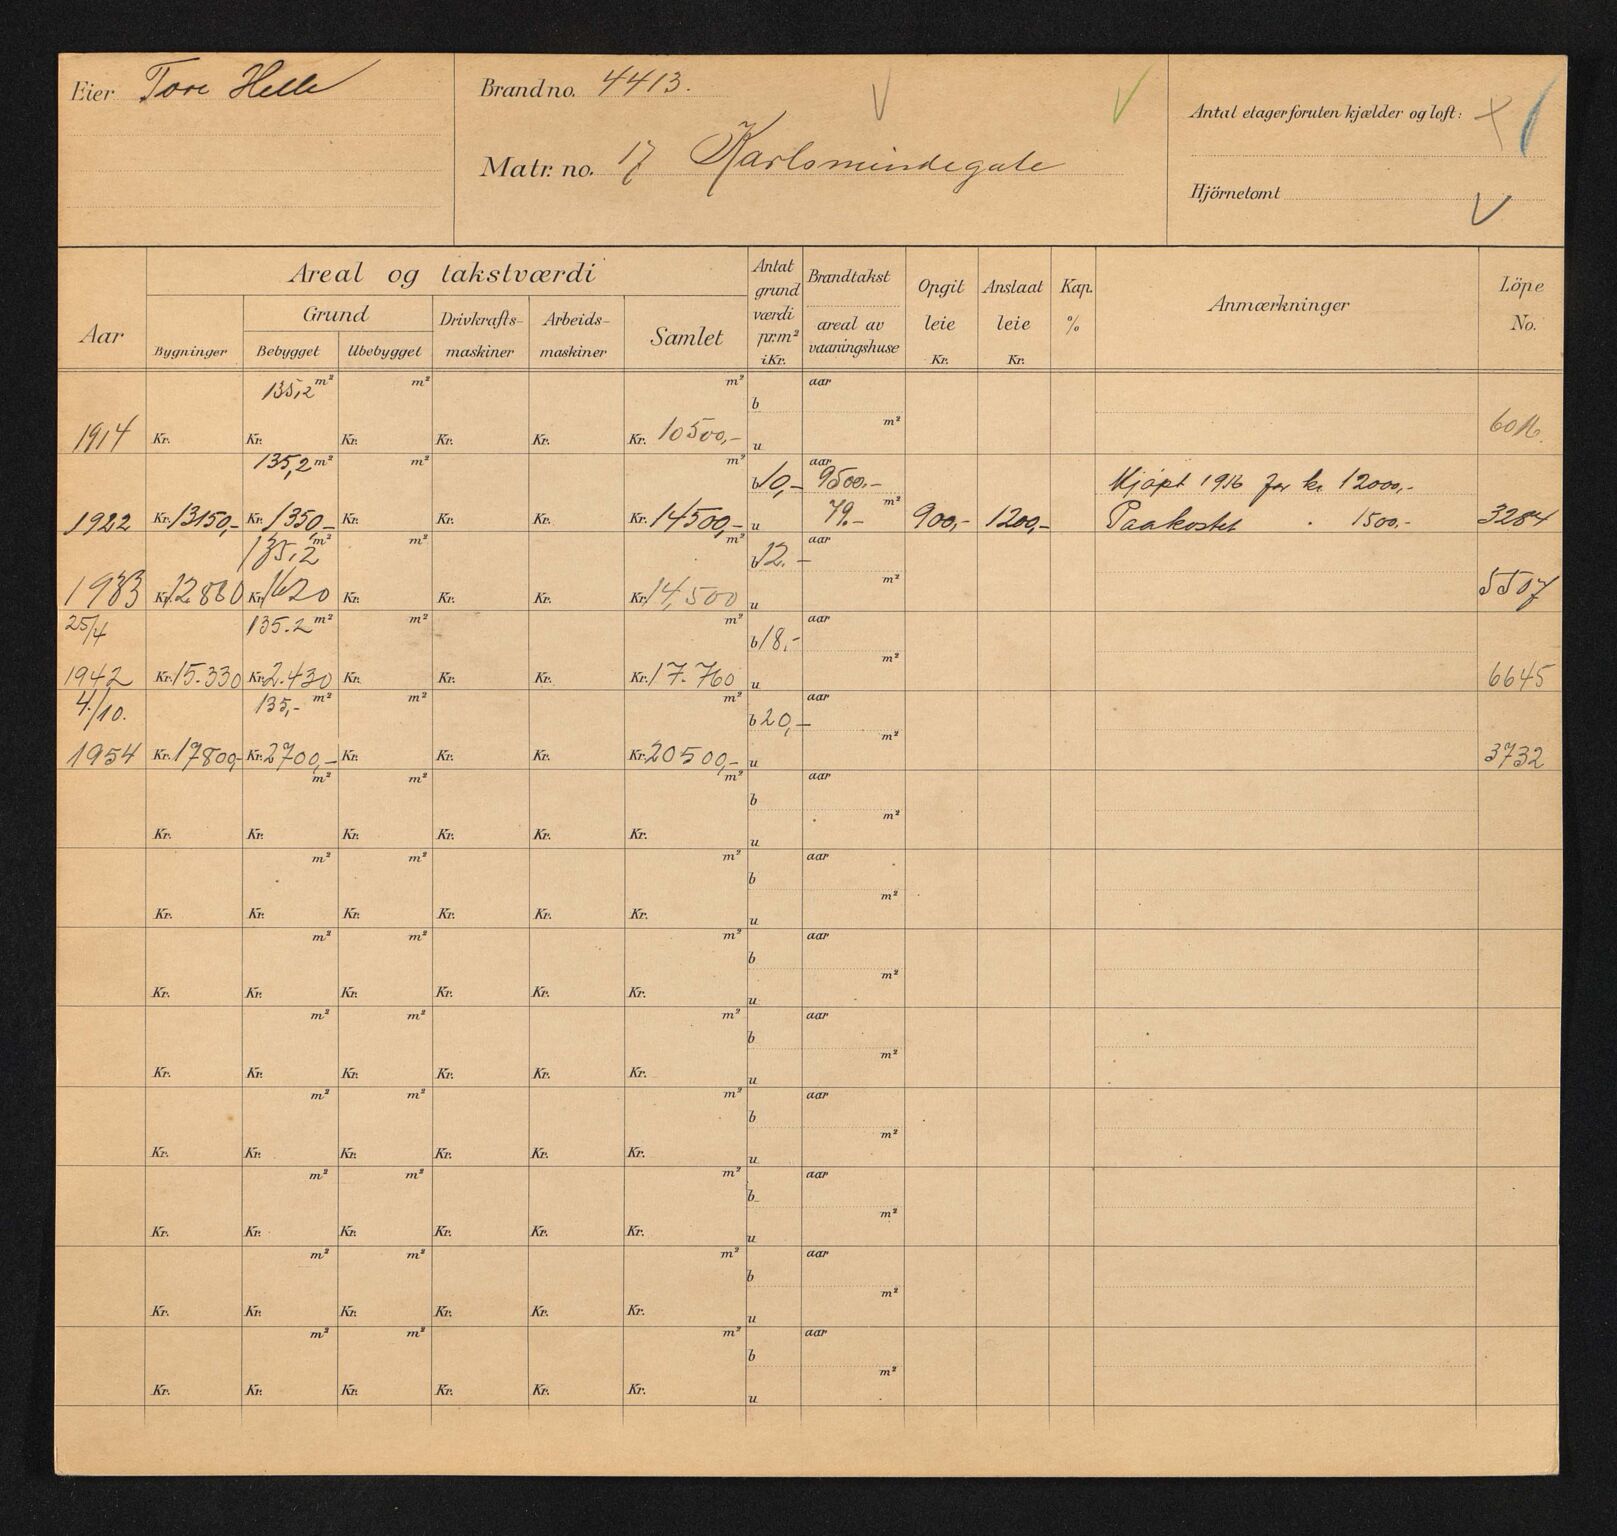 Eier Tore Helle
Brand no. 4413.
Matr. no. 17 Karlsmindegate
Antal etager foruten kjælder og loft:
Hjörnetomt
Aar
Areal og takstværdi
Bygninger
Grund
Bebygget Ubebygget
Drivkrafts-
maskiner
Arbeids-
maskiner
Samlet
Antat
grund
værdi
pr. m²
i Kr.
Brandtakst
areal av
vaaningshuse
Opgit
leie
Kr.
Anslaat
leie
Kr.
Kap.
%
Anmærkninger
Löpe
No.
135,2 m² m² m² b aar
1914 Kr. Kr. Kr. Kr. Kr. Kr. 10500,- u m²
135,2 m² m² m² b 10,- aar 9500.- Kjøpt 1916 for kr 12000,-
1922 Kr. 13150,- Kr. 1350,- Kr. Kr. Kr. Kr. 14500,- u 79.- m² 900,- 1200,- Paakostet " 1500.- 3284
135,2 m² m² m² b 12.- aar
1933 Kr. 12880 Kr. 1620 Kr. Kr. Kr. Kr. 14,500 u m² 5507
25/4 135.2 m² m² m² b 18,- aar
1942 Kr. 15.330 Kr. 2.430 Kr. Kr. Kr. Kr. 17.760 u m² 6645
4/10. 135,- m² m² m² b 20,- aar
1954 Kr. 17800,- Kr. 2700,- Kr. Kr. Kr. Kr. 20500,- u m² 3732
m² m² m² b aar
Kr. Kr. Kr. Kr. Kr. Kr. u m²
m² m² m² b aar
Kr. Kr. Kr. Kr. Kr. Kr. u m²
m² m² m² b aar
Kr. Kr. Kr. Kr. Kr. Kr. u m²
m² m² m² b aar
Kr. Kr. Kr. Kr. Kr. Kr. u m²
m² m² m² b aar
Kr. Kr. Kr. Kr. Kr. Kr. u m²
m² m² m² b aar
Kr. Kr. Kr. Kr. Kr. Kr. u m²
m² m² m² b aar
Kr. Kr. Kr. Kr. Kr. Kr. u m²
m² m² m² b aar
Kr. Kr. Kr. Kr. Kr. Kr. u m²